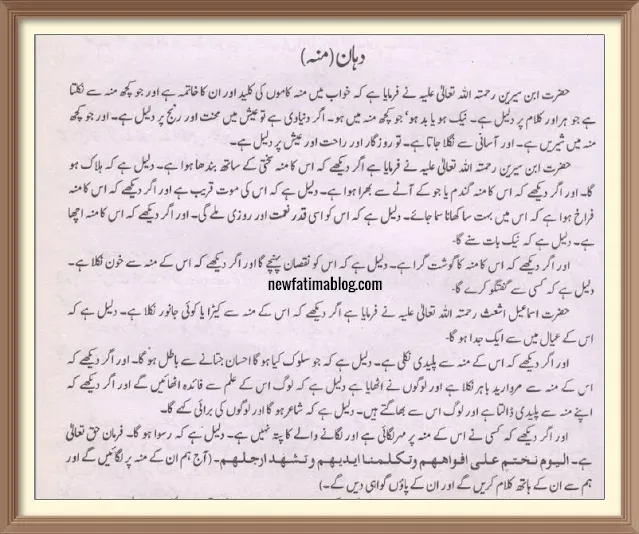 دہان (منہ)
حضرت ابن سیرین رحمتہ اللہ تعالیٰ علیہ نے فرمایا ہے کہ خواب میں منہ کاموں کی کلید اور ان کا خاتمہ ہے اور جو کچھ منہ سے نکلتا
ہے جو ہر اور کلام پر دلیل ہے۔ نیک ہو یا بد ہو' جو کچھ منہ میں ہو۔ اگر دنیاوی ہے تو عیش میں محنت اور رنج پر دلیل ہے۔ اور جو کچھ
منہ میں شیریں ہے۔ اور آسانی سے نگلا جاتا ہے۔ تو روزگار اور راحت اور عیش پر دلیل ہے۔
حضرت ابن سیرین رحمتہ اللہ تعالیٰ علیہ نے فرمایا ہے اگر دیکھے کہ اس کا منہ سختی کے ساتھ بندھا ہوا ہے۔ دلیل ہے کہ ہلاک ہو
گا۔ اور اگر دیکھے کہ اس کا منہ گندم یا جو کے آٹے سے بھرا ہوا ہے۔ دلیل ہے کہ اس کی موت قریب ہے اور اگر دیکھے کہ اس کا منہ
فراخ ہوا ہے کہ اس میں بہت سا کھانا سما جائے۔ دلیل ہے کہ اس کو اسی قدر نعمت اور روزی ملے گی۔ اور اگر دیکھے کہ اس کا منہ اچھا
ہے۔ دلیل ہے کہ نیک بات سنے گا۔
اور اگر دیکھے کہ اس کا منہ کا گوشت گرا ہے۔ دلیل ہے کہ اس کو نقصان پہنچے گا اور اگر دیکھے کہ اس کے منہ سے خون نکلا ہے۔
دلیل ہے کہ کسی سے گفتگو کرے گا۔
newfatimablog.com
حضرت اسماعیل اشعث رحمتہ اللہ تعالیٰ علیہ نے فرمایا ہے اگر دیکھے کہ اس کے منہ سے کیڑا یا کوئی جانور نکلا ہے۔ دلیل ہے کہ
اس کے عیال میں سے ایک جدا ہو گا۔
اور اگر دیکھے کہ اس کے منہ سے پلیدی نکلی ہے۔ دلیل ہے کہ جو سلوک کیا ہو گا احسان جتانے سے باطل ہو گا۔ اور اگر دیکھے کہ
اس کے منہ سے مروارید باہر نکلا ہے اور لوگوں نے اٹھایا ہے دلیل ہے کہ لوگ اس کے علم سے فائدہ اٹھائیں گے اور اگر دیکھے کہ
اپنے منہ سے پلیدی ڈالتا ہے اور لوگ اس سے بھاگتے ہیں۔ دلیل ہے کہ شاعر ہو گا اور لوگوں کی برائی کہے گا۔
اور اگر دیکھے کہ کسی نے اس کے منہ پر مہر لگائی ہے اور لگانے والے کا پتہ نہیں ہے۔ دلیل ہے کہ رسوا ہو گا۔ فرمان حق تعالیٰ
ہے۔ الیوم نختم علی افواھھم وتکلمنا ایدیھم وتشھد ارجلھم۔ (آج ہم ان کے منہ پر لگائیں گے اور
ہم سے ان کے ہاتھ کلام کریں گے اور ان کے پاؤں گواہی دیں گے۔)